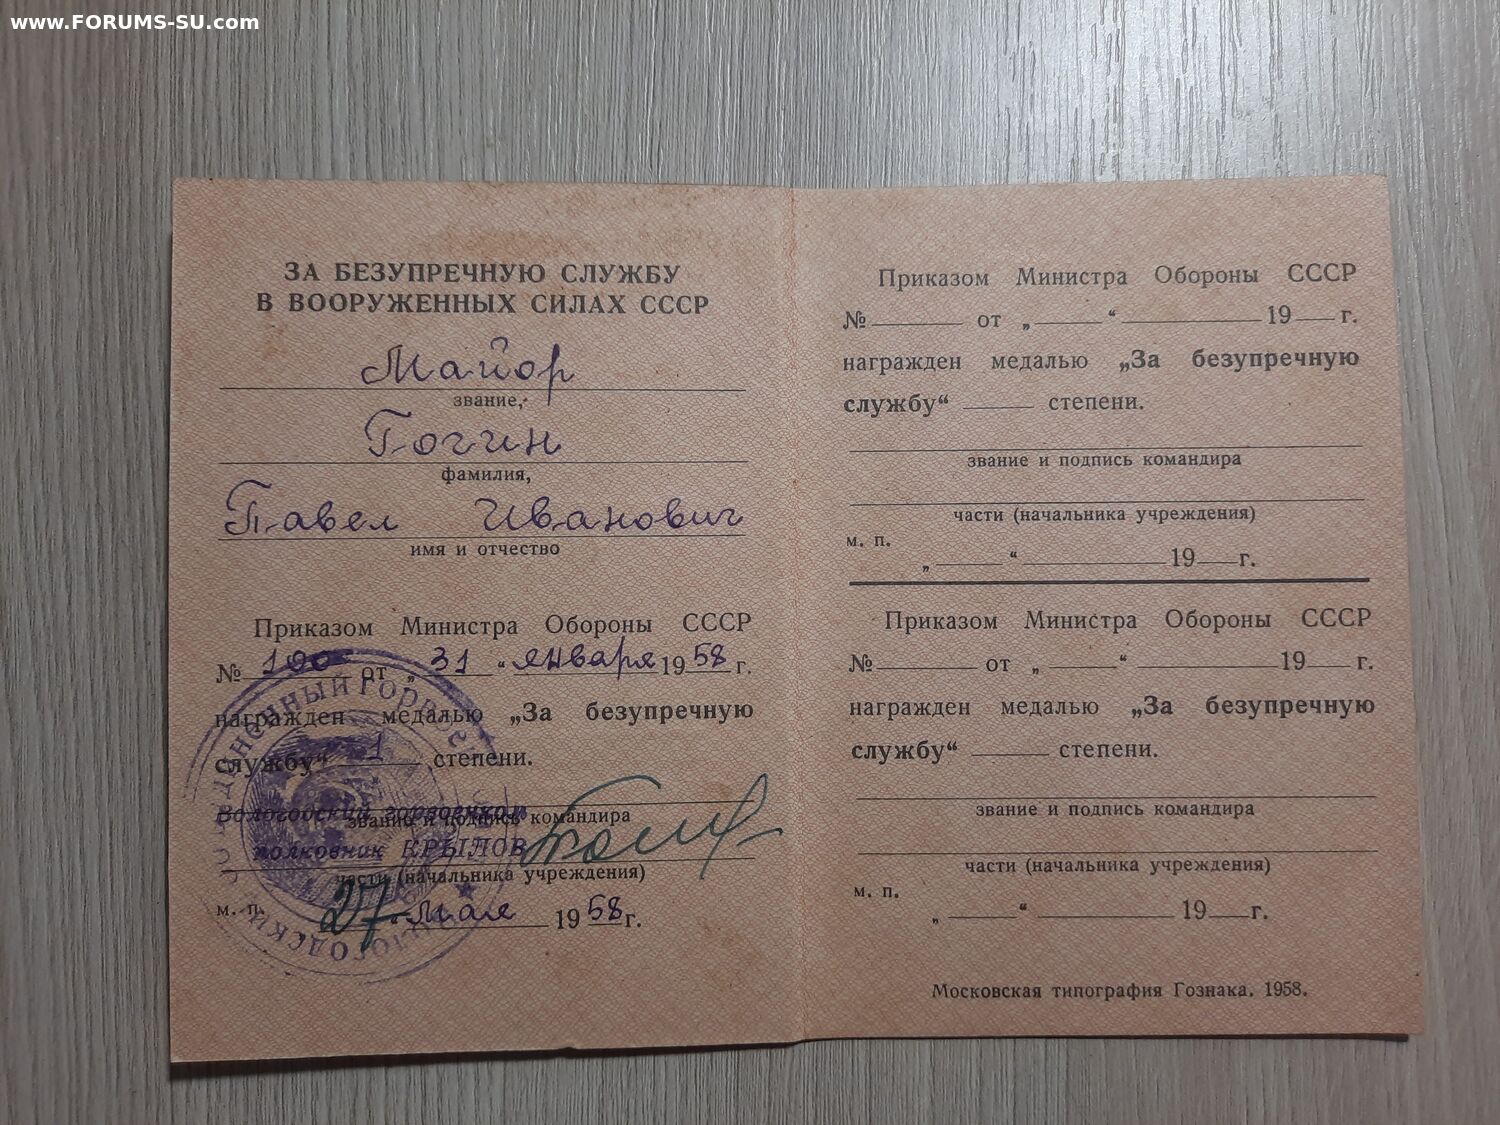 www.FORUMS-SU.com
ЗА БЕЗУПРЕЧНУЮ СЛУЖБУ
В ВООРУЖЕННЫХ СИЛАХ СССР
Майор
звание,
Гогин
фамилия,
Павел Иванович
имя и отчество
Приказом Министра Обороны СССР
№ 100 от „ 31 “ января 19 58 г.
награжден медалью „За безупречную
службу“ 1 степени.
Вологодский горвоенком
звание и подпись командира
полковник КРЫЛОВ
части (начальника учреждения)
м. п.
27 “ мая 19 58 г.
Приказом Министра Обороны СССР
№ от „ “ 19 г.
награжден медалью „За безупречную
службу“ степени.
звание и подпись командира
части (начальника учреждения)
м. п.
„ “ 19 г.
Приказом Министра Обороны СССР
№ от „ “ 19 г.
награжден медалью „За безупречную
службу“ степени.
звание и подпись командира
части (начальника учреждения)
м. п.
„ “ 19 г.
Московская типография Гознака. 1958.